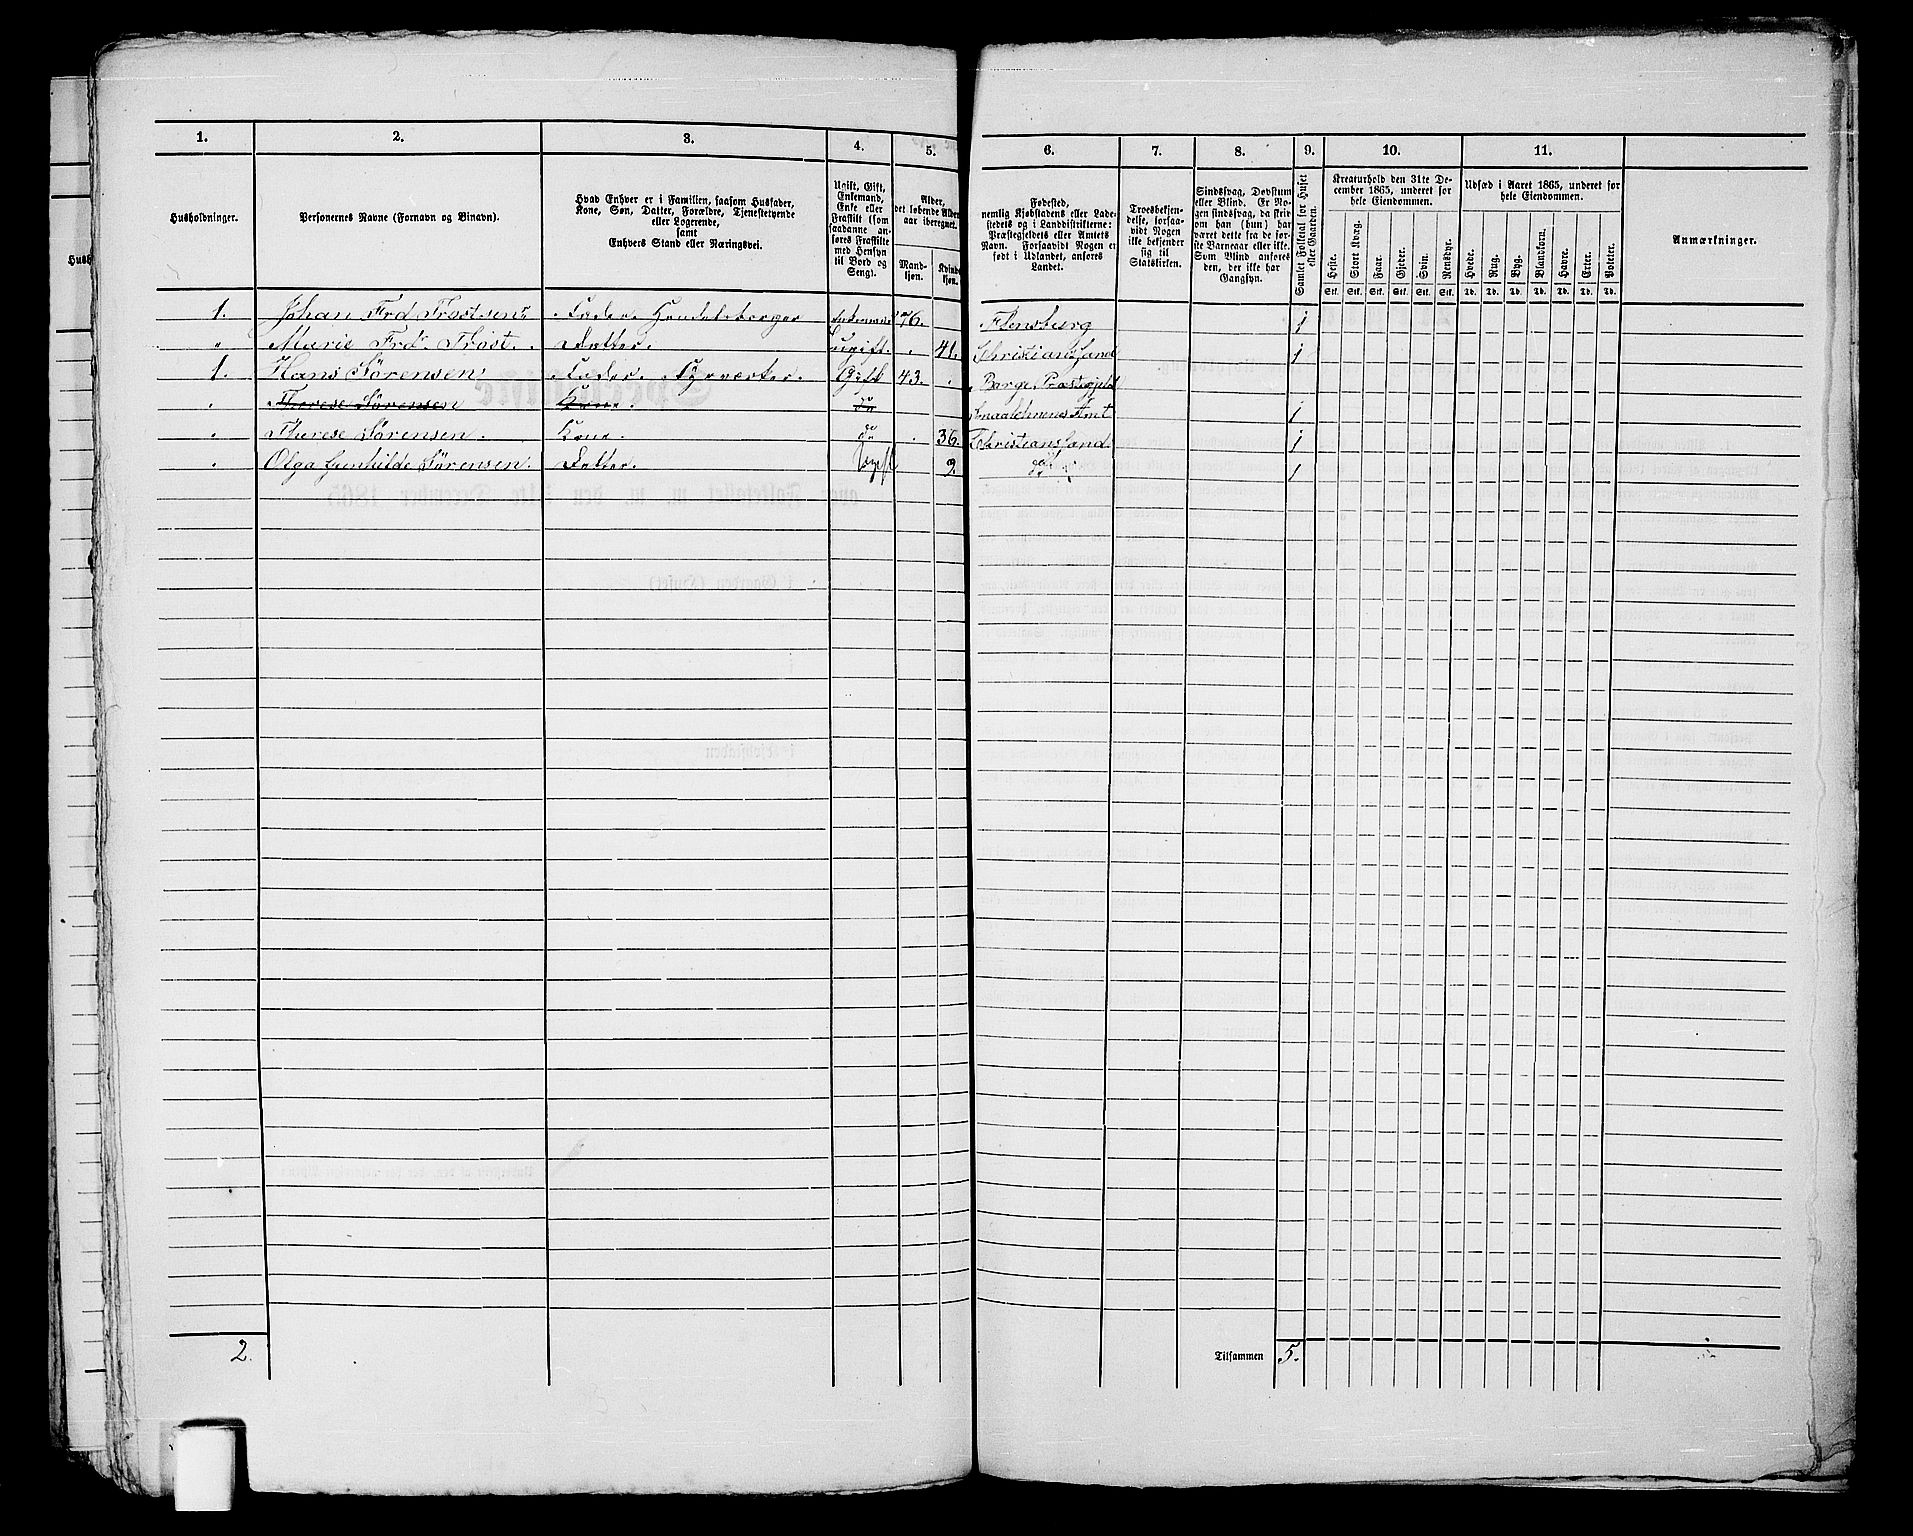 1. 2. 3. 4. 5. 6. 7. 8. 9. 10. 11.
Husholdninger.
Personernes Navne (Fornavn og Binavn).
Hvad Enhver er i Familien, saasom Husfader,
Kone, Søn, Datter, Forældre, Tjenestetyende
eller Logerende,
samt
Enhvers Stand eller Næringsvei.
Ugift, Gift,
Enkemand,
Enke eller
Fraskilt (som
saadanne an-
føres Fraskilte
med Hensyn
til Bord og
Seng).
Alder,
det løbende Alders-
aar iberegnet.
Mand-
kjøn.
Kvinde-
kjøn.
Fødested,
nemlig Kjøbstadens eller Lade-
stedets og i Landdistrikterne:
Præstegjeldets eller Amtets
Navn. Forsaavidt Nogen er
født i Udlandet, anføres
Landet.
Troesbekjen-
delse, forsaa-
vidt Nogen
ikke bekjender
sig til
Statskirken.
Sindssvag, Døvstum
eller Blind. Er No-
gen sindssvag, da skriv
om han (hun) har
været dette fra de før-
ste Barneaar eller ikke.
Som Blind anføres
den, der ikke har
Gangsyn.
Samlet Folketal for Huset
eller Gaarden.
Kreaturhold den 31te De-
cember 1865, underet for
hele Eiendommen.
Heste. Stort Kvæg. Faar. Gjeder. Svin. Rensdyr.
Stk. Stk. Stk. Stk. Stk. Stk.
Udsæd i Aaret 1865, underet for
hele Eiendommen.
Hvede. Rug. Byg. Blandkorn. Havre. Erter. Poteter.
Td. Td. Td. Td. Td. Td. Td.
Anmærkninger.
1. Johan Frd Frostsen Fader. Handelsborger Enkemand 76. Flensburg 1
" Marie Frd. Frost. Datter. Ugift. . 41. Christiansand 1
1. Hans Sørensen Fader. Gift 43. . Borge Præstegjeld
" Therese Sørensen Kone. do Smaalehnenes Amt 1
" Therese Sørensen. Kone. do . 36. Christiansand 1
" Olga Gunhilde Sørensen. Datter. Ugift 9. do 1
2. Tilsammen 5.